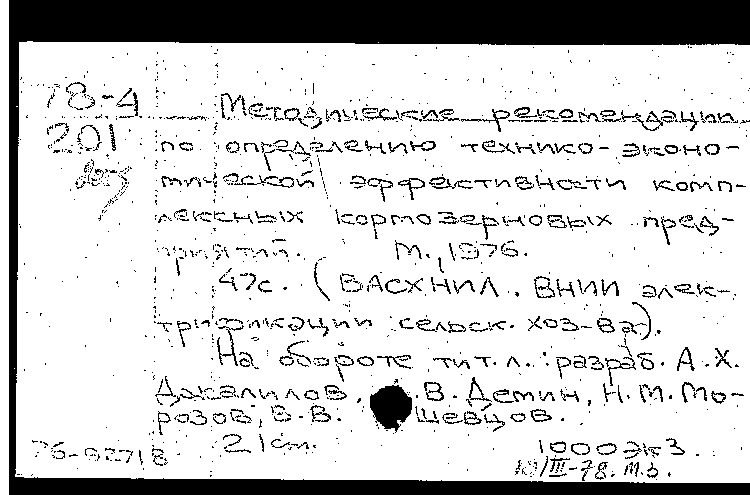 78-4
201
Методические рекомендации
по определению технико-эконо-
мической эффективности комп-
лексных кормозерновых пред-
приятий. М., 1976.
47с. (ВАСХНИЛ. ВНИИ элек-
трификации сельск. хоз-ва).
На обороте тит. л.: разраб. А.Х.
Джалилов, .В. Демин, Н.М. Мо-
розов, В.В. Шевцов.
21см. 1000 экз.
76-92718 10/III-78. М.З.